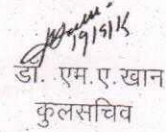 19/5/15
डॉ. एम.ए.खान
कुलसचिव